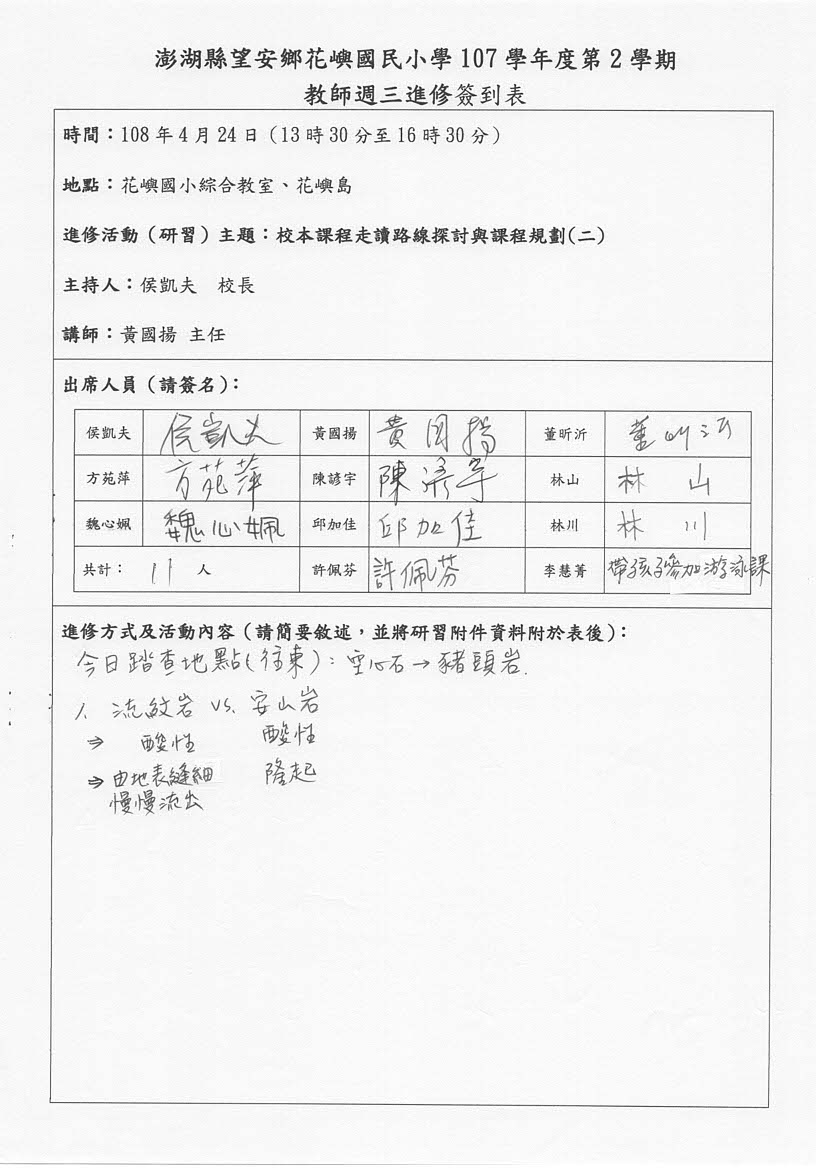 澎湖縣望安鄉花嶼國民小學107學年度第2學期
教師週三進修簽到表
時間：108年4月24日（13時30分至16時30分）
地點：花嶼國小綜合教室、花嶼島
進修活動（研習）主題：校本課程走讀路線探討與課程規劃(二)
主持人：侯凱夫 校長
講師：黃國揚 主任
出席人員（請簽名）：
侯凱夫 侯凱夫 黃國揚 黃國揚 董昕沂 董昕沂
方苑萍 方苑萍 陳諺宇 陳諺宇 林山 林山
魏心姵 魏心姵 邱加佳 邱加佳 林川 林川
共計： 11 人 許佩芬 許佩芬 李慧菁 帶孩子參加游泳課
進修方式及活動內容（請簡要敘述，並將研習附件資料附於表後）：
今日踏查地點(往東)：空心石→豬頭岩.
1. 流紋岩 vs. 安山岩
⇒ 酸性 酸性
⇒ 由地表縫細 隆起
慢慢流出